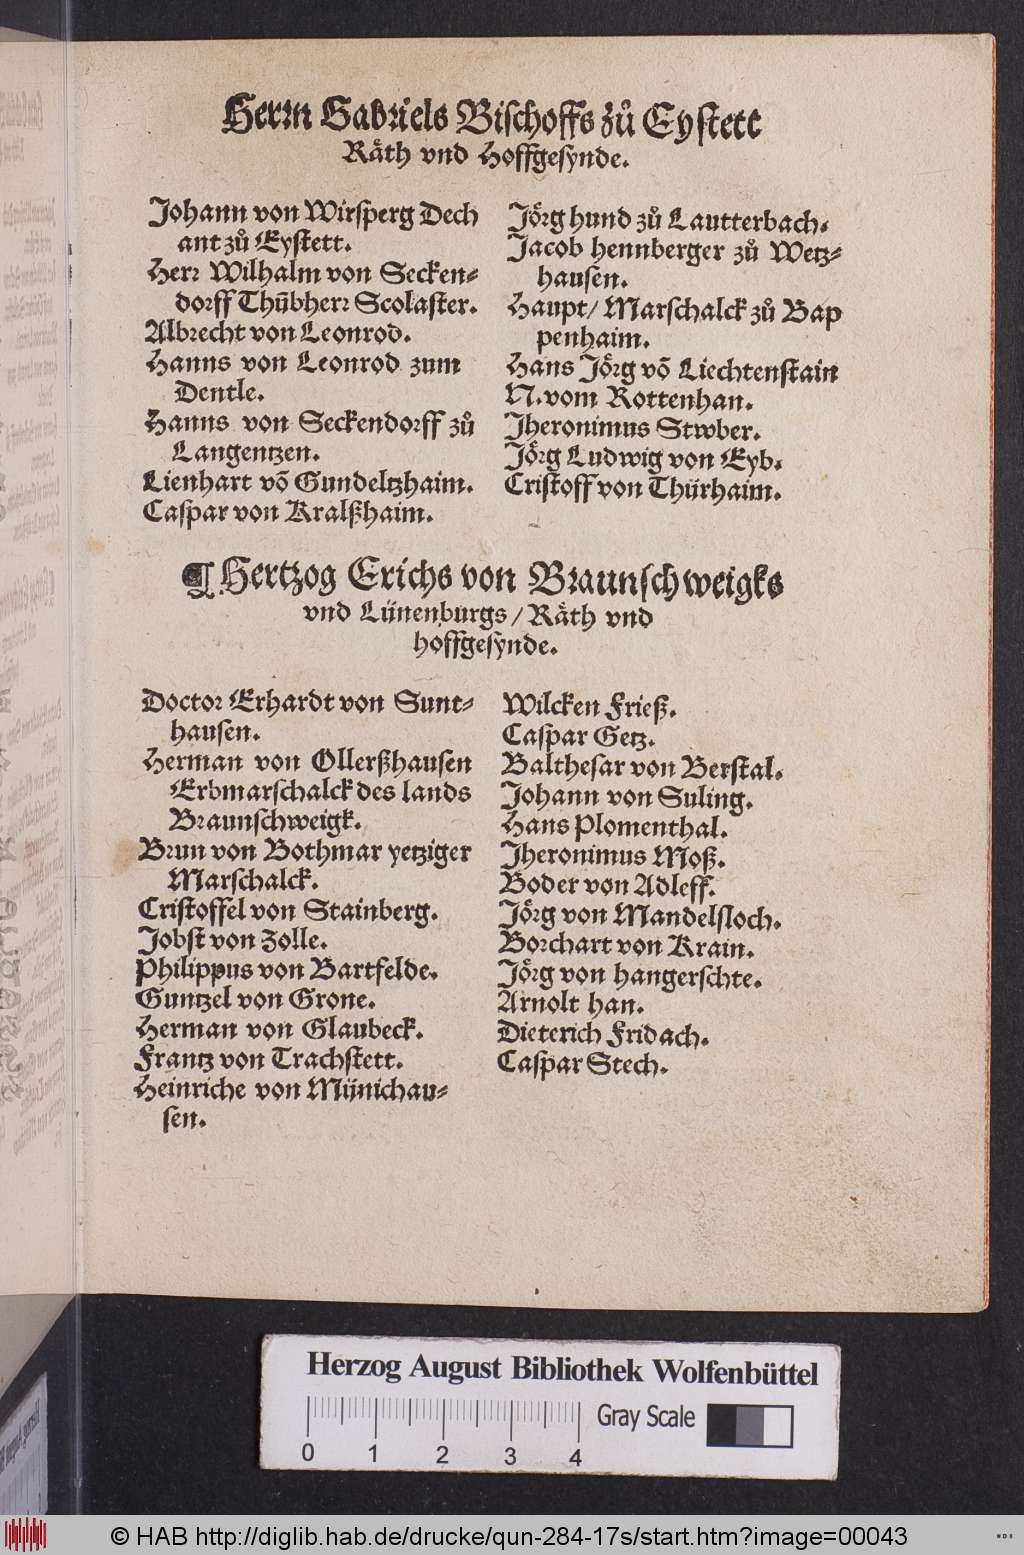 Herrn Gabriels Bischoffs zů Eystett
Räth vnd Hoffgesynde.
Johann von Wirsperg Dech
ant zů Eystett.
Herr Wilhalm von Secken-
dorff Thũbherr Scolaster.
Albrecht von Leonrod.
Hanns von Leonrod zum
Dentle.
Hanns von Seckendorff zů
Langentzen.
Lienhart võ Gundeltzhaim.
Caspar von Kralßhaim.
Jörg hund zů Lautterbach.
Jacob hennberger zů Wetz-
hausen.
Haupt/ Marschalck zů Bap
penhaim.
Hans Jörg võ Liechtenstain
N. vom Rottenhan.
Jheronimus Stwber.
Jörg Ludwig von Eyb.
Cristoff von Thürhaim.
¶ Hertzog Erichs von Braunschweigks
vnd Lünenburgs/ Räth vnd
hoffgesynde.
Doctor Erhardt von Sunt-
hausen.
Herman von Ollerßhausen
Erbmarschalck des lands
Braunschweigk.
Brun von Bothmar yetziger
Marschalck.
Cristoffel von Stainberg.
Jobst von Zolle.
Philippus von Bartfelde.
Guntzel von Grone.
Herman von Glaubeck.
Frantz von Trachstett.
Heinriche von Münichau-
sen.
Wilcken Frieß.
Caspar Getz.
Balthesar von Berstal.
Johann von Suling.
Hans Plomenthal.
Jheronimus Moß.
Boder von Adleff.
Jörg von Mandelsloch.
Borchart von Krain.
Jörg von hangerschte.
Arnolt han.
Dieterich Fridach.
Caspar Stech.
Herzog August Bibliothek Wolfenbüttel
Gray Scale
0 1 2 3 4
© HAB http://diglib.hab.de/drucke/qun-284-17s/start.htm?image=00043